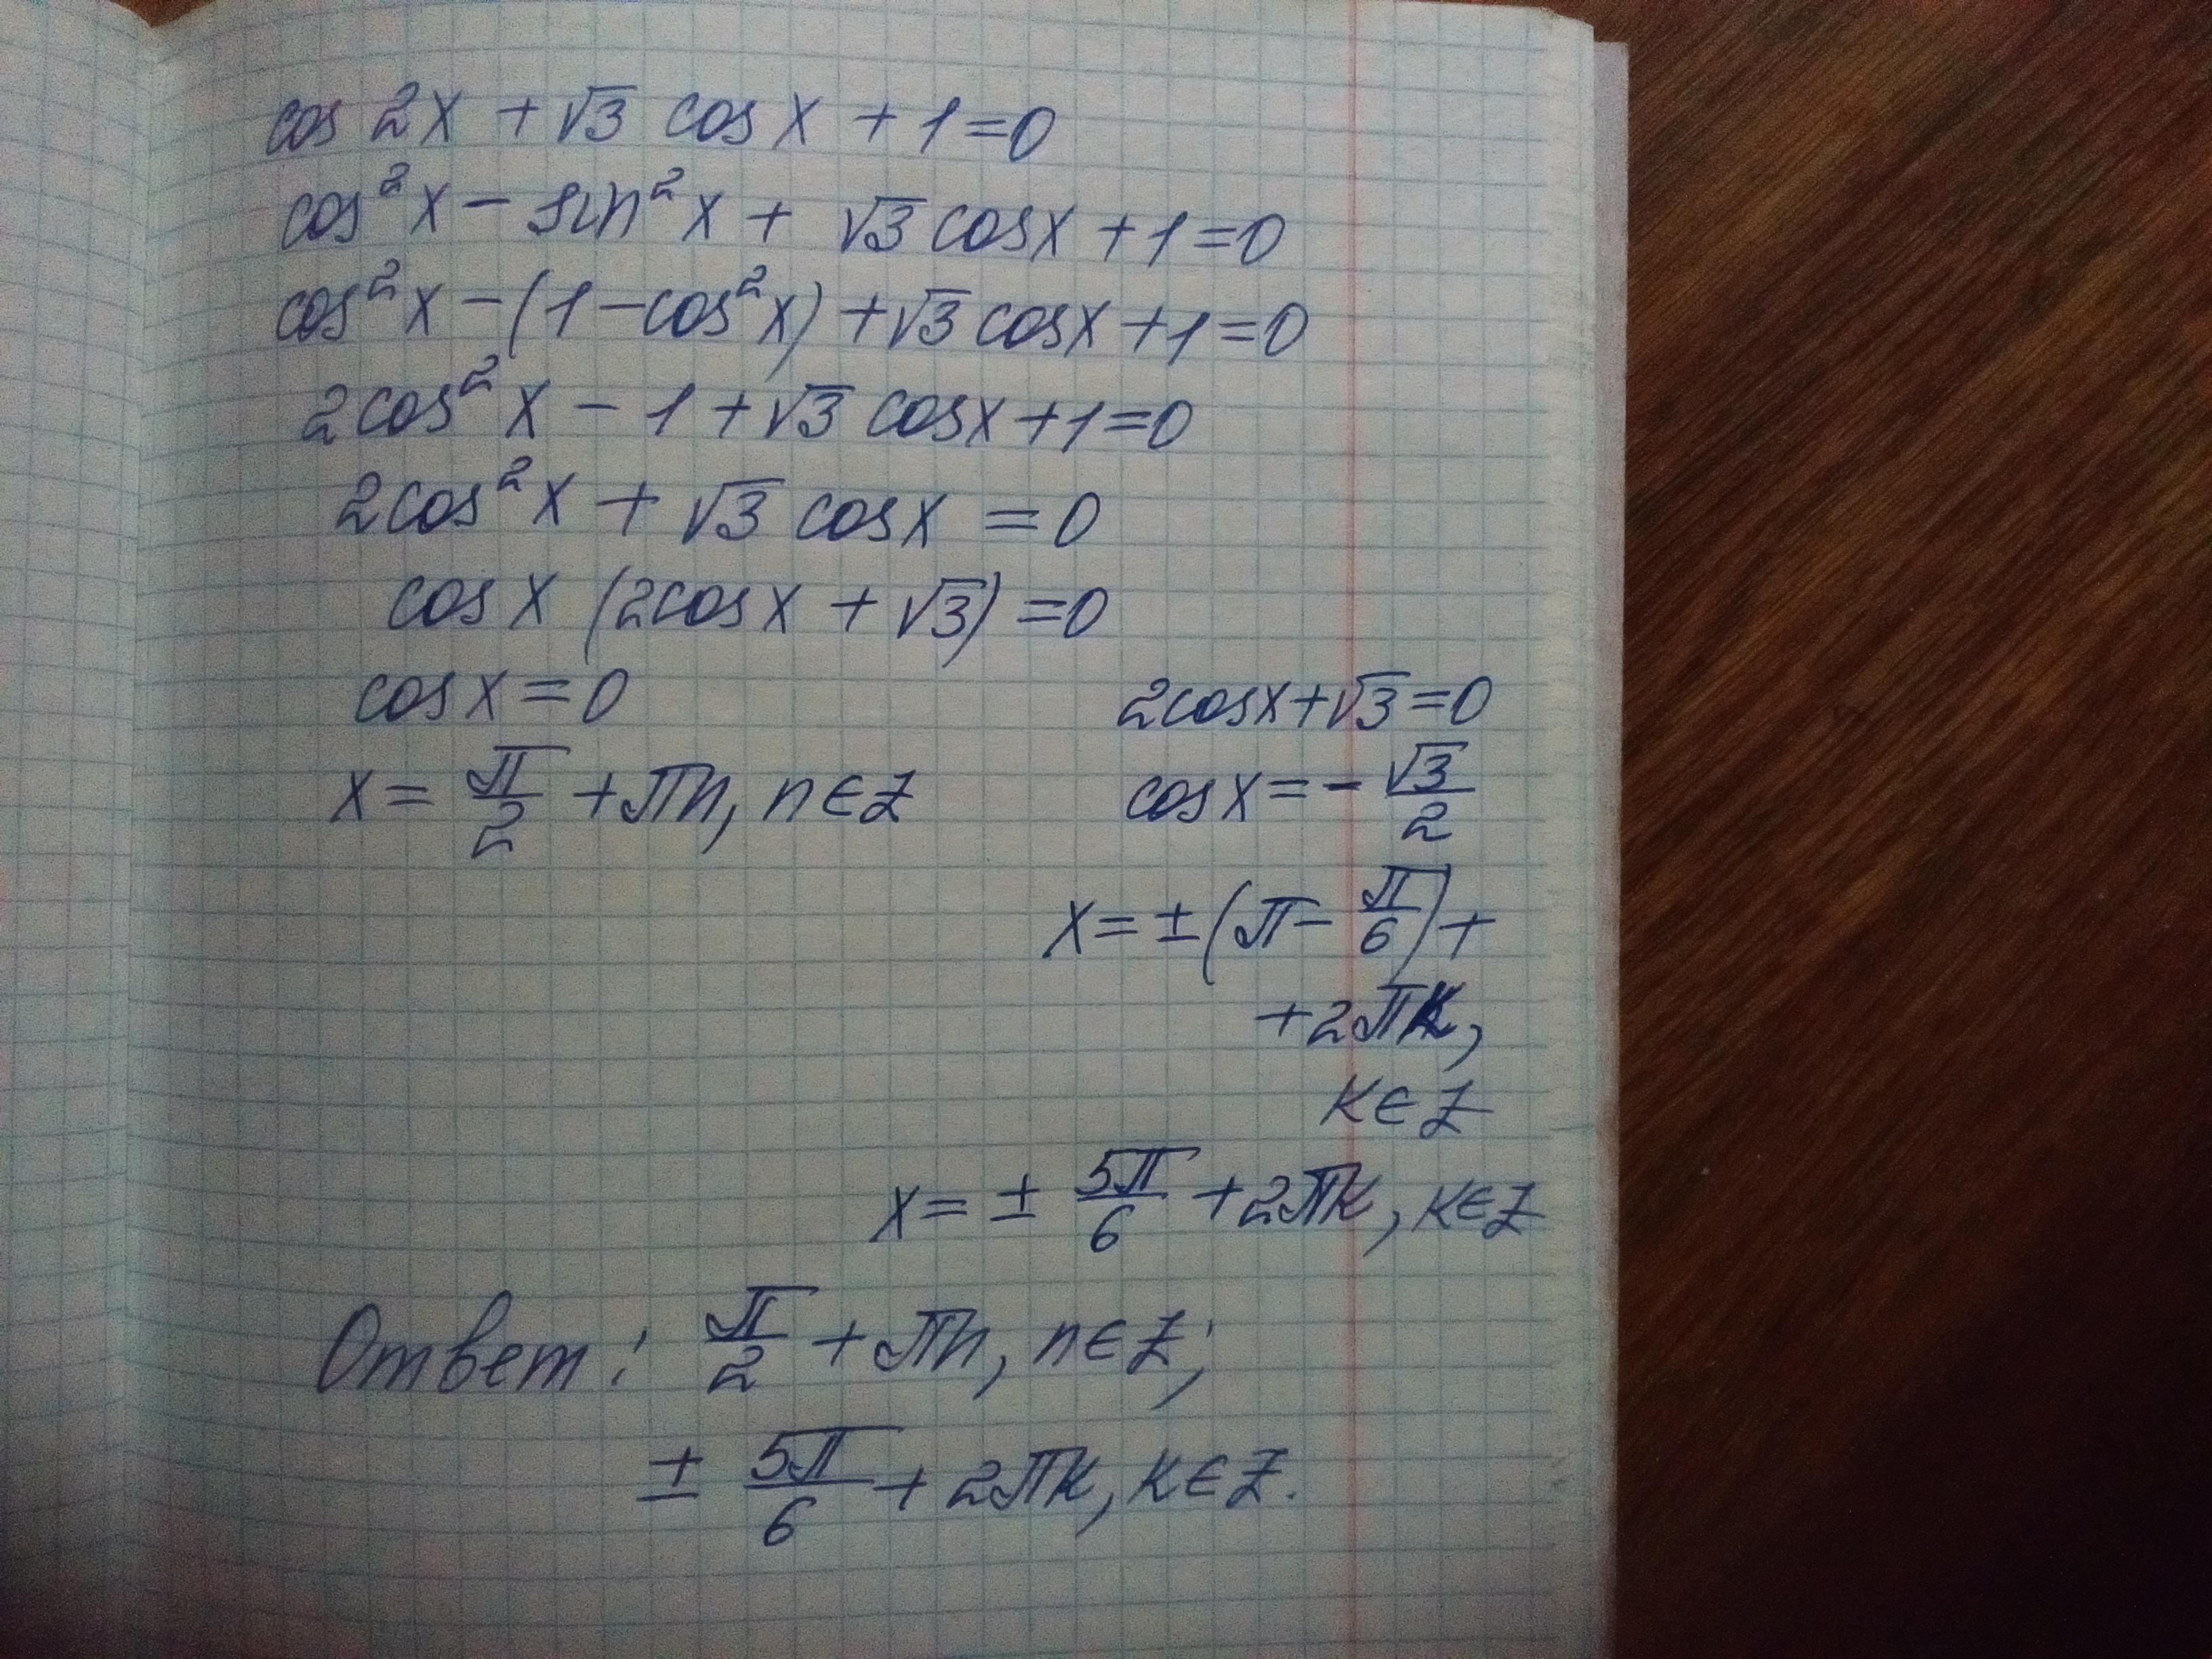 cos 2x + √3 cos x + 1 = 0
cos²x − sin²x + √3 cosx + 1 = 0
cos²x − (1 − cos²x) + √3 cosx + 1 = 0
2cos²x − 1 + √3 cosx + 1 = 0
2cos²x + √3 cosx = 0
cos x (2cosx + √3) = 0
cosx = 0
x = π/2 + πn, n∈Z
2cosx + √3 = 0
cosx = − √3/2
x = ± (π − π/6) +
+ 2πk,
k∈Z
x = ± 5π/6 + 2πk, k∈Z
Ответ: π/2 + πn, n∈Z;
± 5π/6 + 2πk, k∈Z.